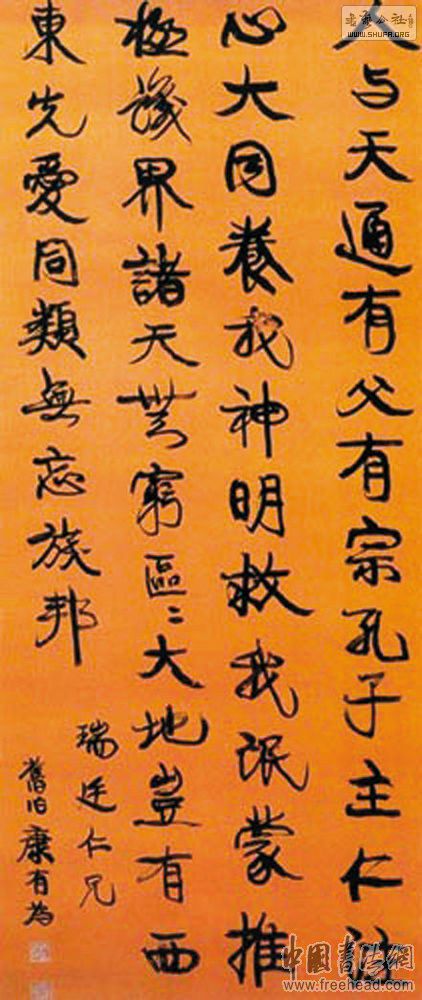 人与天通有父有宗孔子主仁
心大同養我神明救我氓蒙推
極界諸天無窮區〻大地豈有西
東先愛同類無忘族邦
瑞廷仁兄
康有為
書法公社
WWW.SHUFA.ORG
中國書法網
www.freehead.com